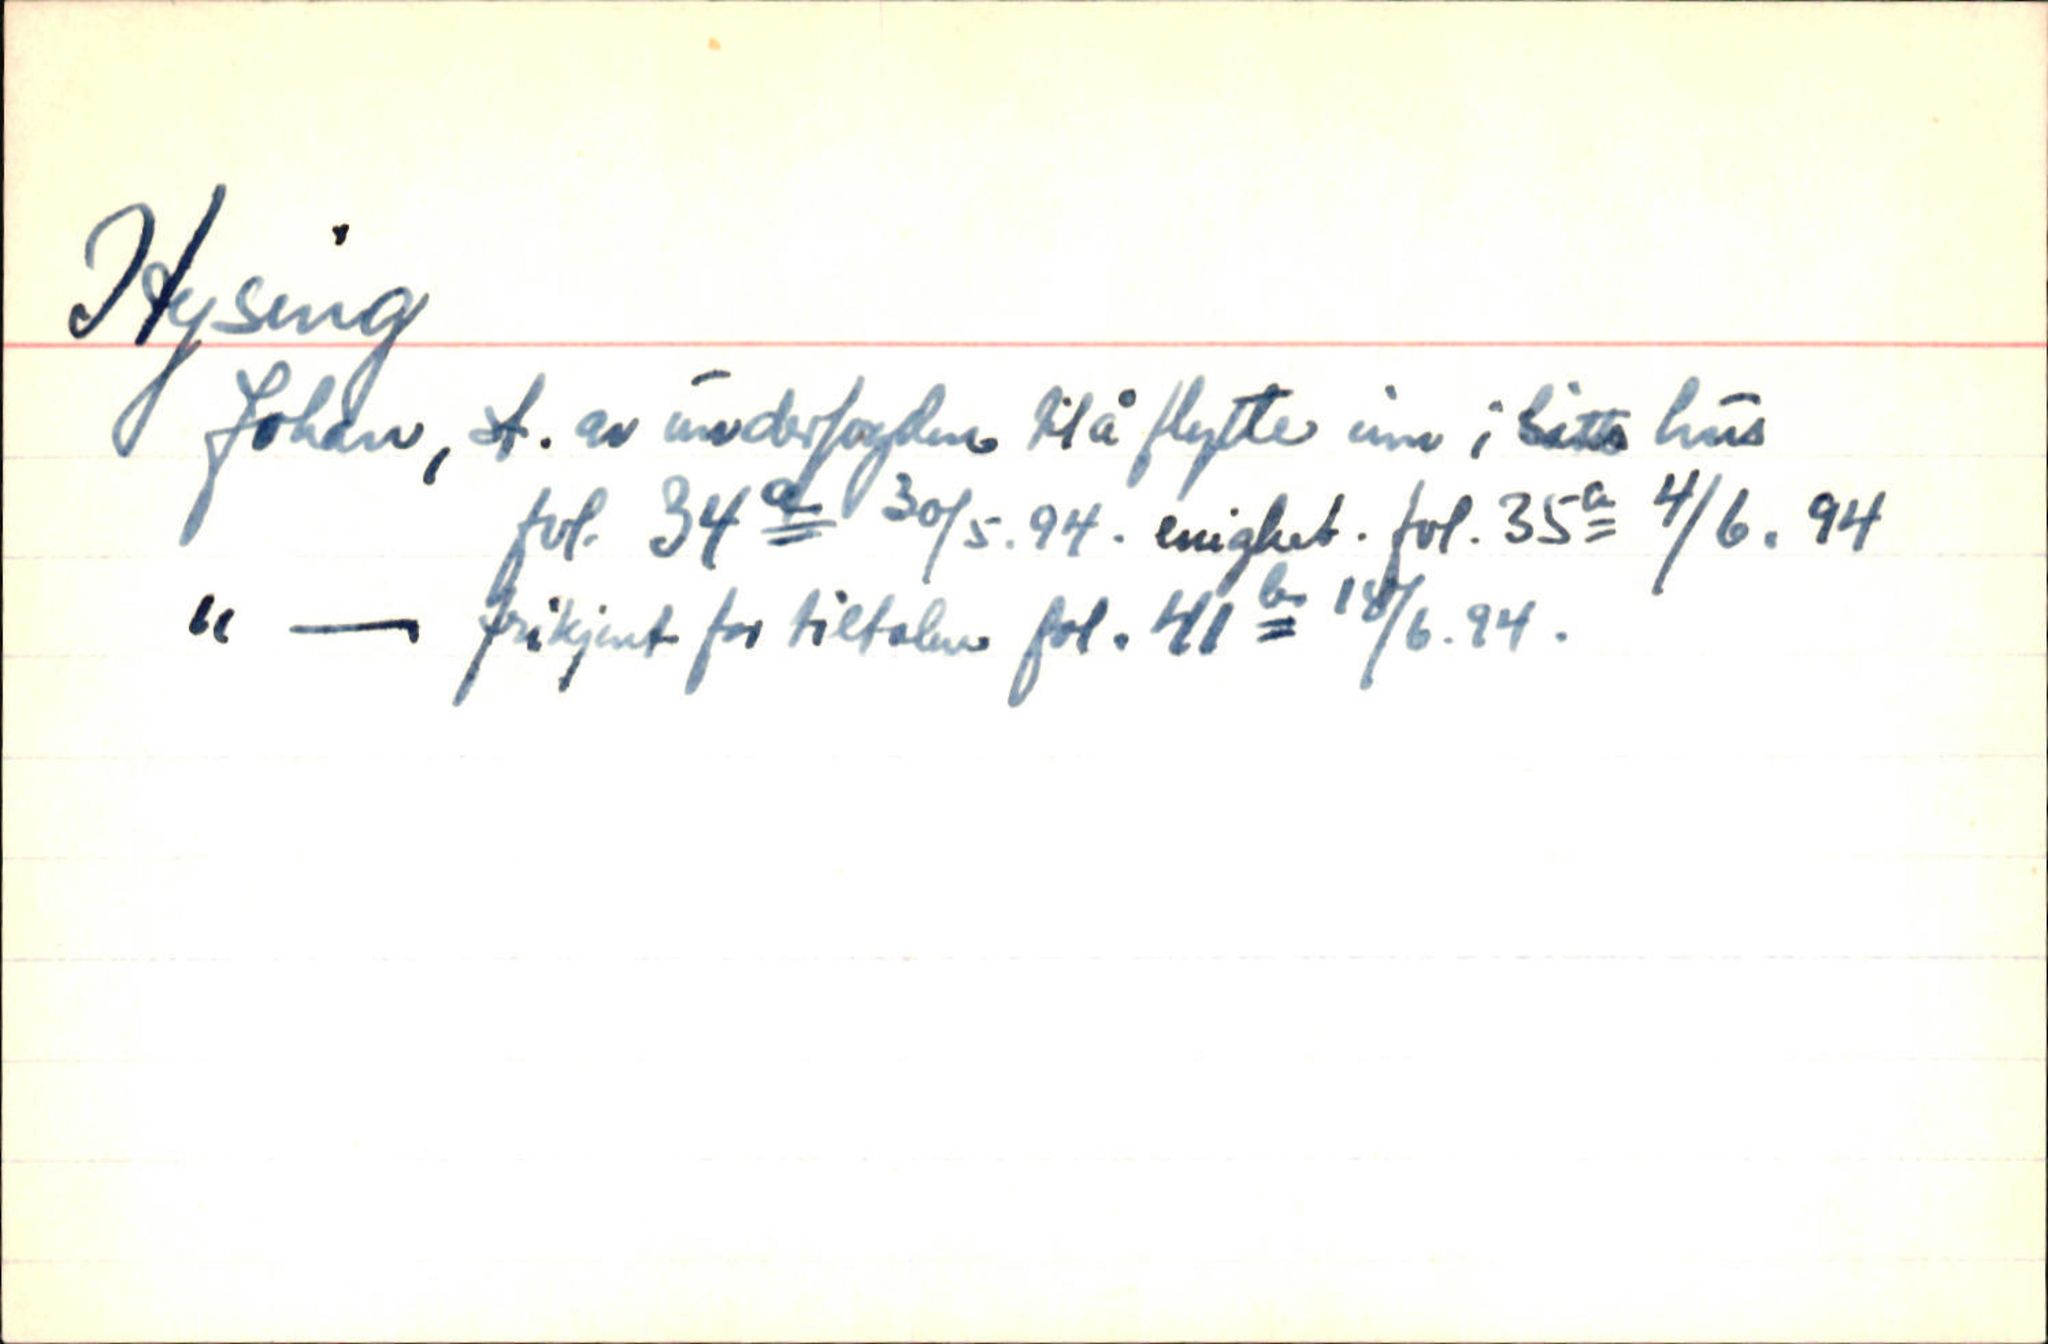 Hysing
Johan, st. av underfogden til å flytte inn i sitts hus
fol. 34a 30/5. 94. enighet. fol. 35a 4/6. 94
" — frikjent for tiltalen fol. 41b 18/6. 94.